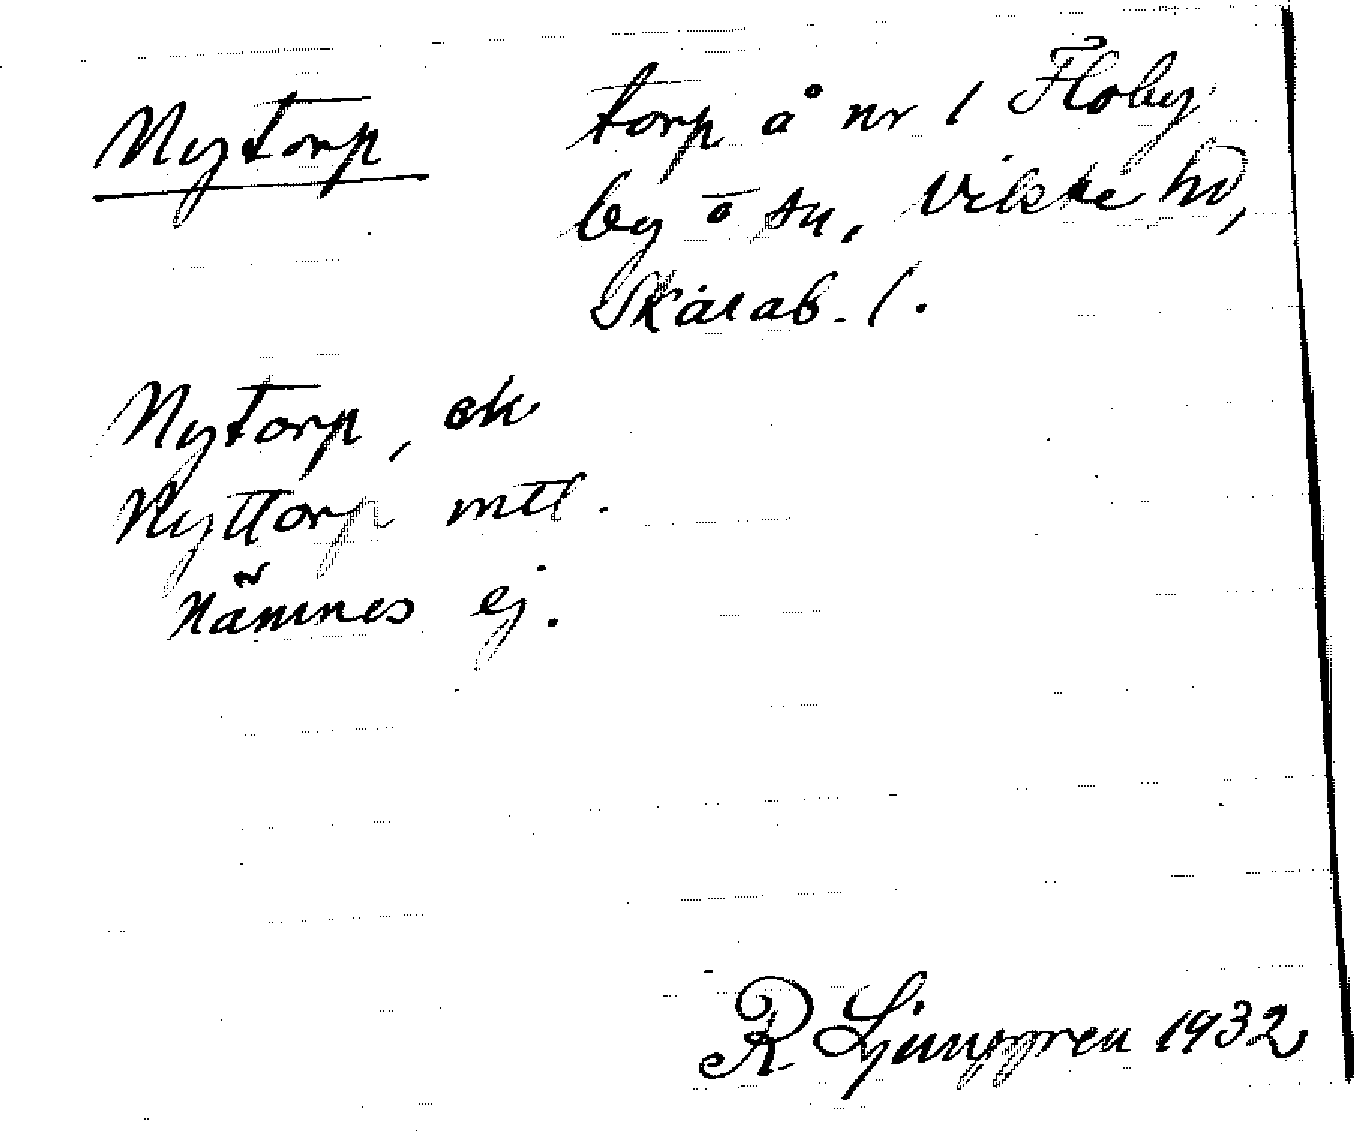 Nytorp
torp å nr 1 Floby
by o sn, Vilske hd,
Skarab. l.
Nytorp, ek
Nyttorp mtl.
Nämnes ej.
R Ljunggren 1932